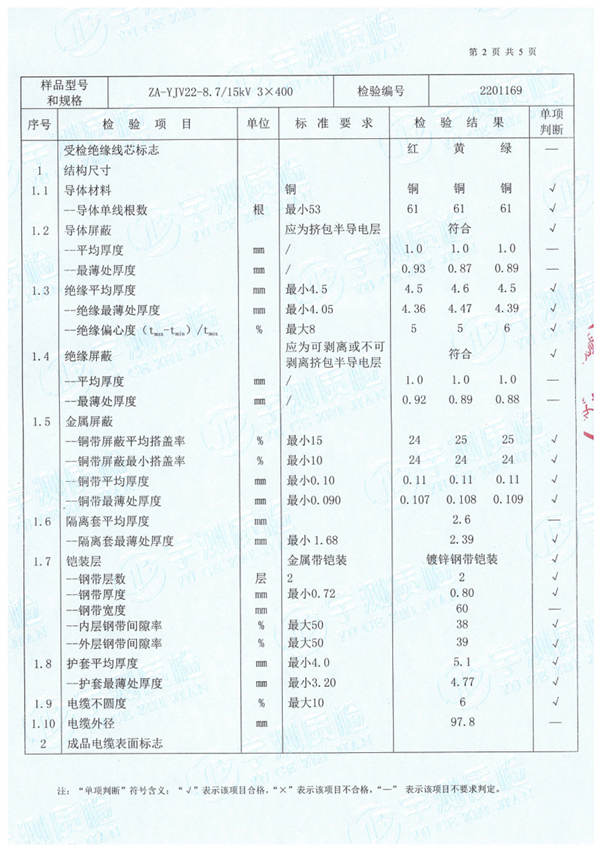 第 2 页 共 5 页
样品型号和规格 ZA-YJV22-8.7/15kV 3×400 检验编号 2201169
序号 检 验 项 目 单位 标 准 要 求 检 验 结 果 单项判断
受检绝缘线芯标志 红 黄 绿 —
1 结构尺寸
1.1 导体材料 铜 铜 铜 铜 √
--导体单线根数 根 最小53 61 61 61 √
1.2 导体屏蔽 应为挤包半导电层 符合 √
--平均厚度 mm / 1.0 1.0 1.0 —
--最薄处厚度 mm / 0.93 0.87 0.89 —
1.3 绝缘平均厚度 mm 最小4.5 4.5 4.6 4.5 √
--绝缘最薄处厚度 mm 最小4.05 4.36 4.47 4.39 √
--绝缘偏心度（tmax-tmin）/tmax % 最大8 5 5 6 √
1.4 绝缘屏蔽 应为可剥离或不可剥离挤包半导电层 符合 √
--平均厚度 mm / 1.0 1.0 1.0 —
--最薄处厚度 mm / 0.92 0.89 0.88 —
1.5 金属屏蔽
--铜带屏蔽平均搭盖率 % 最小15 24 25 25 √
--铜带屏蔽最小搭盖率 % 最小10 24 24 24 √
--铜带平均厚度 mm 最小0.10 0.11 0.11 0.11 √
--铜带最薄处厚度 mm 最小0.090 0.107 0.108 0.109 √
1.6 隔离套平均厚度 mm 2.6 —
--隔离套最薄处厚度 mm 最小 1.68 2.39 √
1.7 铠装层 金属带铠装 镀锌钢带铠装 √
--钢带层数 层 2 2 √
--钢带厚度 mm 最小0.72 0.80 √
--钢带宽度 mm 60 —
--内层钢带间隙率 % 最大50 38 √
--外层钢带间隙率 % 最大50 39 √
1.8 护套平均厚度 mm 最小4.0 5.1 √
--护套最薄处厚度 mm 最小3.20 4.77 √
1.9 电缆不圆度 % 最大10 6 √
1.10 电缆外径 mm 97.8 —
2 成品电缆表面标志
注：“单项判断”符号含义：“√”表示该项目合格，“×”表示该项目不合格，“—” 表示该项目不要求判定。